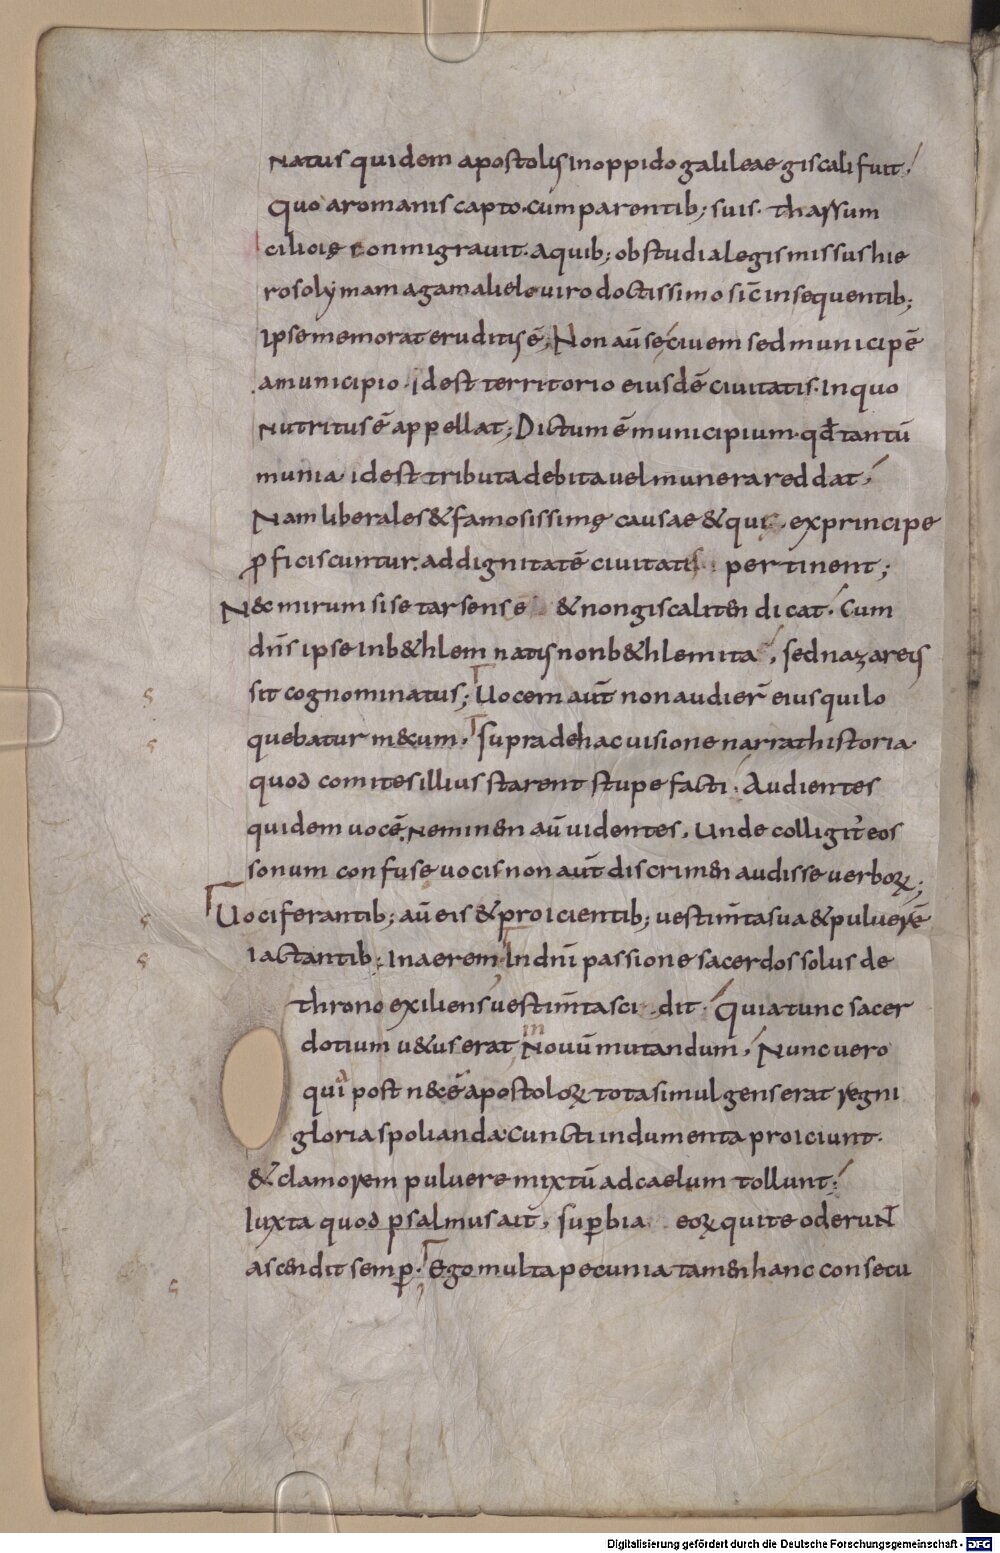 natus quidem apostolus in oppido galileae giscali fuit.
Quo a romanis capto. cum parentib; suis. thassum
cilicię conmigrauit. A quib; ob studia legis missus hie
rosolymam a gamaliele uiro doctissimo sic̄ in sequentib;
ipse memorat eruditus ē; Non aū se ciuem sed municipē
a municipio. idest territorio eiusdē ciuitatis. In quo
nutritus ē appellat; Dictum ē municipium. qđ tantū
munia. idest tributa debita uel munera reddat;
Nam liberales & famosissimę causae & quę ex principe
ꝓficiscuntur. ad dignitatē ciuitatis pertinent;
N&c mirum si se tarsense & non giscaliten dicat. Cum
dn̄s ipse in b&hlem natus non b&hlemita, sed nazareus
sit cognominatus; Uocem aūt non audier̄ eius qui lo
quebatur mecum. supra de hac uisione narrat historia
quod comites illius starent stupefacti. Audientes
quidem uocē. neminen aū uidentes. Unde colligit̄ eos
sonum confuse uocis non aūt discrimen audisse uerboꝝ;
Uociferantib; aū eis & proicientib; uestim̄ta sua & puluerē
iactantib; in aerem. In dn̄i passione sacerdos solus de
throno exiliens uestim̄ta scidit. Quia tunc sacer
dotium u&us erat. Nouū mutandum. Nunc uero
qui post n&cē apostoloꝝ tota simul gens erat regni
gloria spolianda. Cuncti indumenta proiciunt.
& clamorem puluere mixtū ad caelum tollunt.
Iuxta quod psalmus ait̄. suꝑbia eoꝝ qui te oderun̄t
ascendit semꝑ. Ego multa pecunia tamen hanc consecu
Digitalisierung gefördert durch die Deutsche Forschungsgemeinschaft - DFG